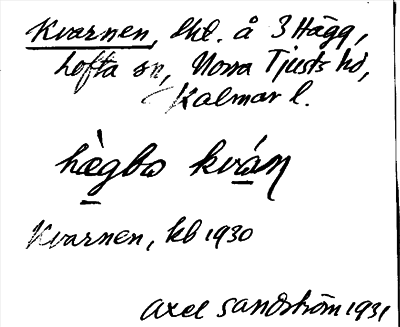 Kvarnen, lht. å 3 Hägg,
Lofta sn, Norra Tjusts hd,
Kalmar l.
hàgbω kván
Kvarnen, kb 1930
Axel Sandström 1931